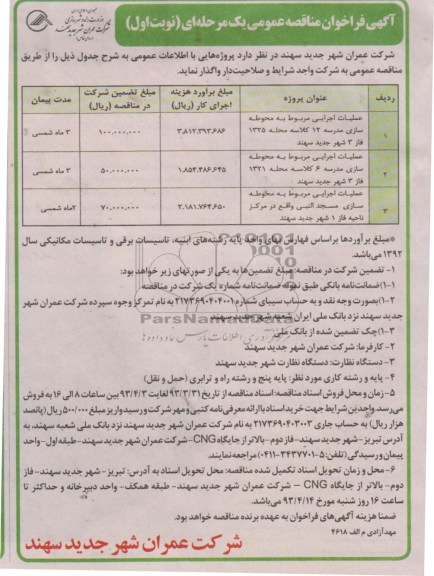 آگهی فراخوان مناقصه عمومی یک مرحله‌ای (نوبت اول)
شرکت عمران شهر جدید سهند در نظر دارد پروژه‌هایی با اطلاعات عمومی به شرح جدول ذیل را از طریق
مناقصه عمومی به شرکت واجد شرایط و صلاحیت‌دار واگذار نماید.
ردیف عنوان پروژه مبلغ برآورد هزینه اجرای کار (ریال) مبلغ تضمین شرکت در مناقصه (ریال) مدت پیمان
۱ عملیات اجرایی مربوط به محوطه سازی مدرسه ۱۲ کلاسه محله ۱۳۲۵ فاز ۳ شهر جدید سهند ۳.۸۱۲.۳۹۳.۶۸۶ ۱۰۰.۰۰۰.۰۰۰ ۳ ماه شمسی
۲ عملیات اجرایی مربوط به محوطه سازی مدرسه ۶ کلاسه محله ۱۳۲۱ فاز ۳ شهر جدید سهند ۱.۸۵۴.۴۸۶.۶۴۵ ۵۰.۰۰۰.۰۰۰ ۳ ماه شمسی
۳ عملیات اجرایی مربوط به محوطه سازی مسجد النبی واقع در مرکز ناحیه فاز ۱ شهر جدید سهند ۲.۱۸۱.۷۶۴.۶۵۰ ۷۰.۰۰۰.۰۰۰ ۲ماه شمسی
*مبلغ برآوردها براساس فهارس بهای واحد پایه رشته‌های ابنیه، تاسیسات برقی و تاسیسات مکانیکی سال
۱۳۹۲ می‌باشد.
۱- تضمین شرکت در مناقصه: مبلغ تضمین‌ها به یکی از صورتهای زیر خواهد بود:
۱-۱)ضمانت‌نامه بانکی طبق نمونه ضمانت‌نامه شماره یک شرکت در مناقصه
۲-۱)بصورت وجه نقد و به حساب سیبای شماره ۲۱۷۳۶۹۰۴۰۴۰۰۱ به نام تمرکز وجوه سپرده شرکت عمران شهر
جدید سهند نزد بانک ملی ایران شعبه شهر جدید سهند
۳-۱)چک تضمین شده از بانک ملی
۲- کارفرما: شرکت عمران شهر جدید سهند
۳- دستگاه نظارت: دستگاه نظارت شهر جدید سهند
۴- پایه و رشته کاری مورد نظر: پایه پنج و رشته راه و ترابری (حمل و نقل)
۵- زمان و محل فروش اسناد مناقصه: اسناد مناقصه از تاریخ ۹۳/۳/۳۱ لغایت ۹۳/۴/۳ بین ساعات ۸ الی ۱۶ به فروش
می‌رسد. واجدین شرایط جهت خرید اسناد با ارائه معرفی‌نامه کتبی و مهر شرکت و رسید واریز مبلغ ۵۰۰/۰۰۰ ریال (پانصد
هزار ریال) به حساب جاری ۲۱۷۳۶۹۰۴۰۲۰۰۳ به نام شرکت عمران شهر جدید سهند نزد بانک ملی شعبه سهند، به
آدرس تبریز -شهر جدید سهند- فاز دوم- بالاتر از جایگاه CNG- شرکت عمران شهر جدید سهند- طبقه اول- واحد
پیمان و رسیدگی (تلفن: ۵-۳۴۳۷۷۰۱-۰۴۱۱) مراجعه نمایند.
۶- محل و زمان تحویل اسناد تکمیل شده مناقصه: محل تحویل اسناد به آدرس: تبریز- شهر جدید سهند- فاز
دوم- بالاتر از جایگاه CNG - شرکت عمران شهر جدید سهند- طبقه همکف- واحد دبیرخانه و حداکثر تا
ساعت ۱۶ روز شنبه مورخ ۹۳/۴/۱۴ می‌باشد.
ضمنا هزینه آگهی‌های فراخوان به عهده برنده مناقصه خواهد بود.
مهدآزادی م الف ۴۶۱۸
شرکت عمران شهر جدید سهند